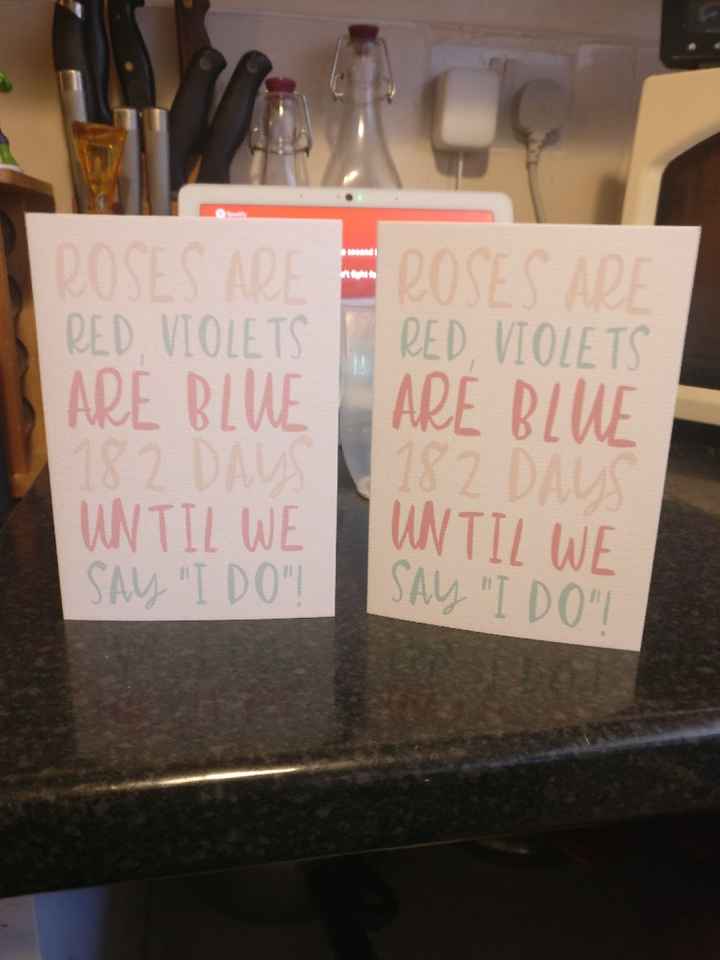 Spotify
ROSES ARE
RED, VIOLETS
ARE BLUE
182 DAYS
UNTIL WE
SAY "I DO"!
ROSES ARE
RED, VIOLETS
ARE BLUE
182 DAYS
UNTIL WE
SAY "I DO"!